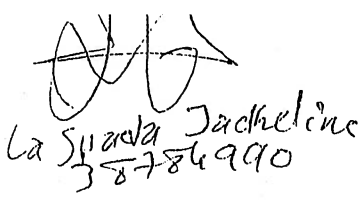 La Spada Jackeline
38784990